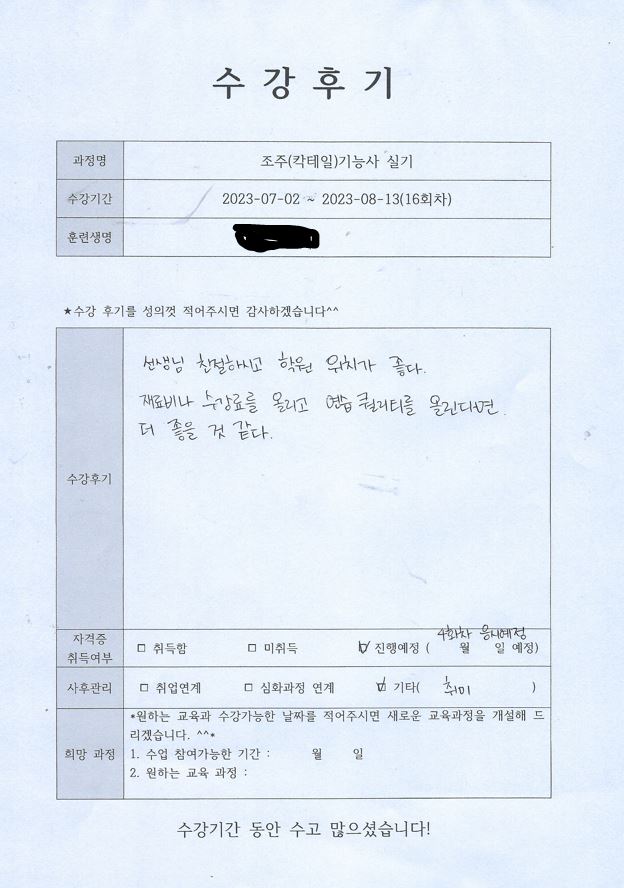 수 강 후 기
과정명 조주(칵테일)기능사 실기
수강기간 2023-07-02 ~ 2023-08-13(16회차)
훈련생명
★수강 후기를 성의껏 적어주시면 감사하겠습니다^^
선생님 친절하시고 학원 위치가 좋다.
재료비나 수강료를 올리고 연습 퀄리티를 올린다면
더 좋을 것 같다.
수강후기
4회차 응시예정
자격증
취득여부 □ 취득함 □ 미취득 ☑ 진행예정 ( 월 일 예정)
사후관리 □ 취업연계 □ 심화과정 연계 ☑ 기타( 취미 )
*원하는 교육과 수강가능한 날짜를 적어주시면 새로운 교육과정을 개설해 드
리겠습니다. ^^*
희망 과정 1. 수업 참여가능한 기간 : 월 일
2. 원하는 교육 과정 :
수강기간 동안 수고 많으셨습니다!